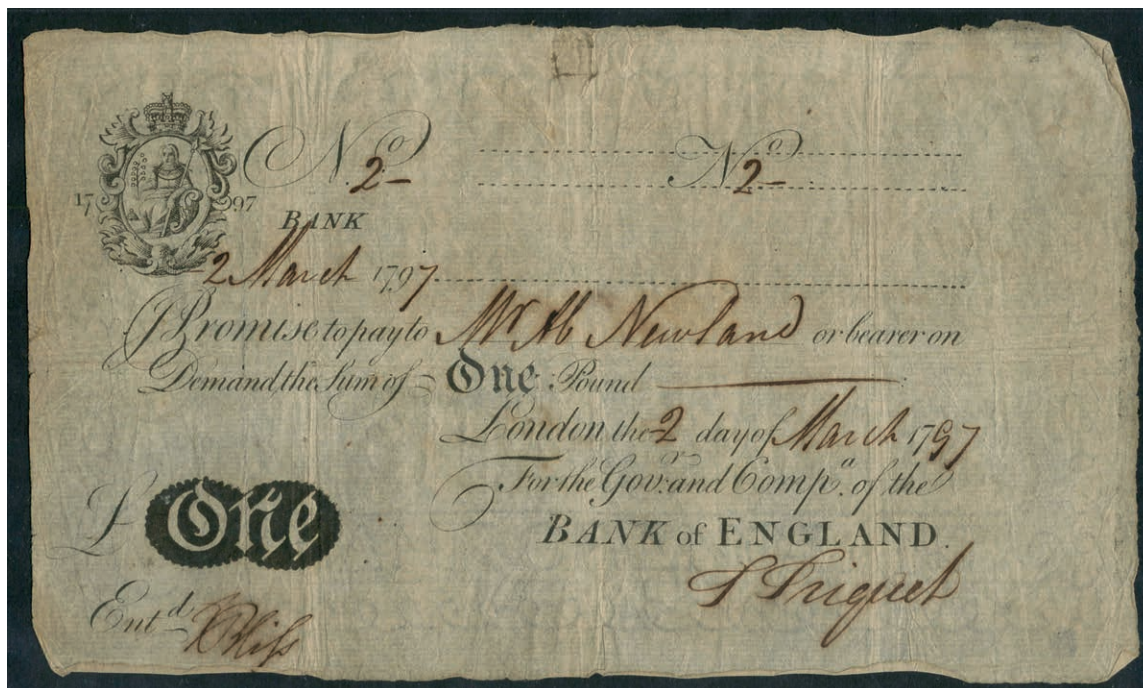 No 2 No 2
17 97
BANK
2 March 1797
I Promise to pay to Mr Ab Newland or bearer on
Demand the Sum of One Pound
London the 2 day of March 1797
For the Govr. and Compa. of the
BANK of ENGLAND.
£ One
T Triquet
Entd. Bliſs